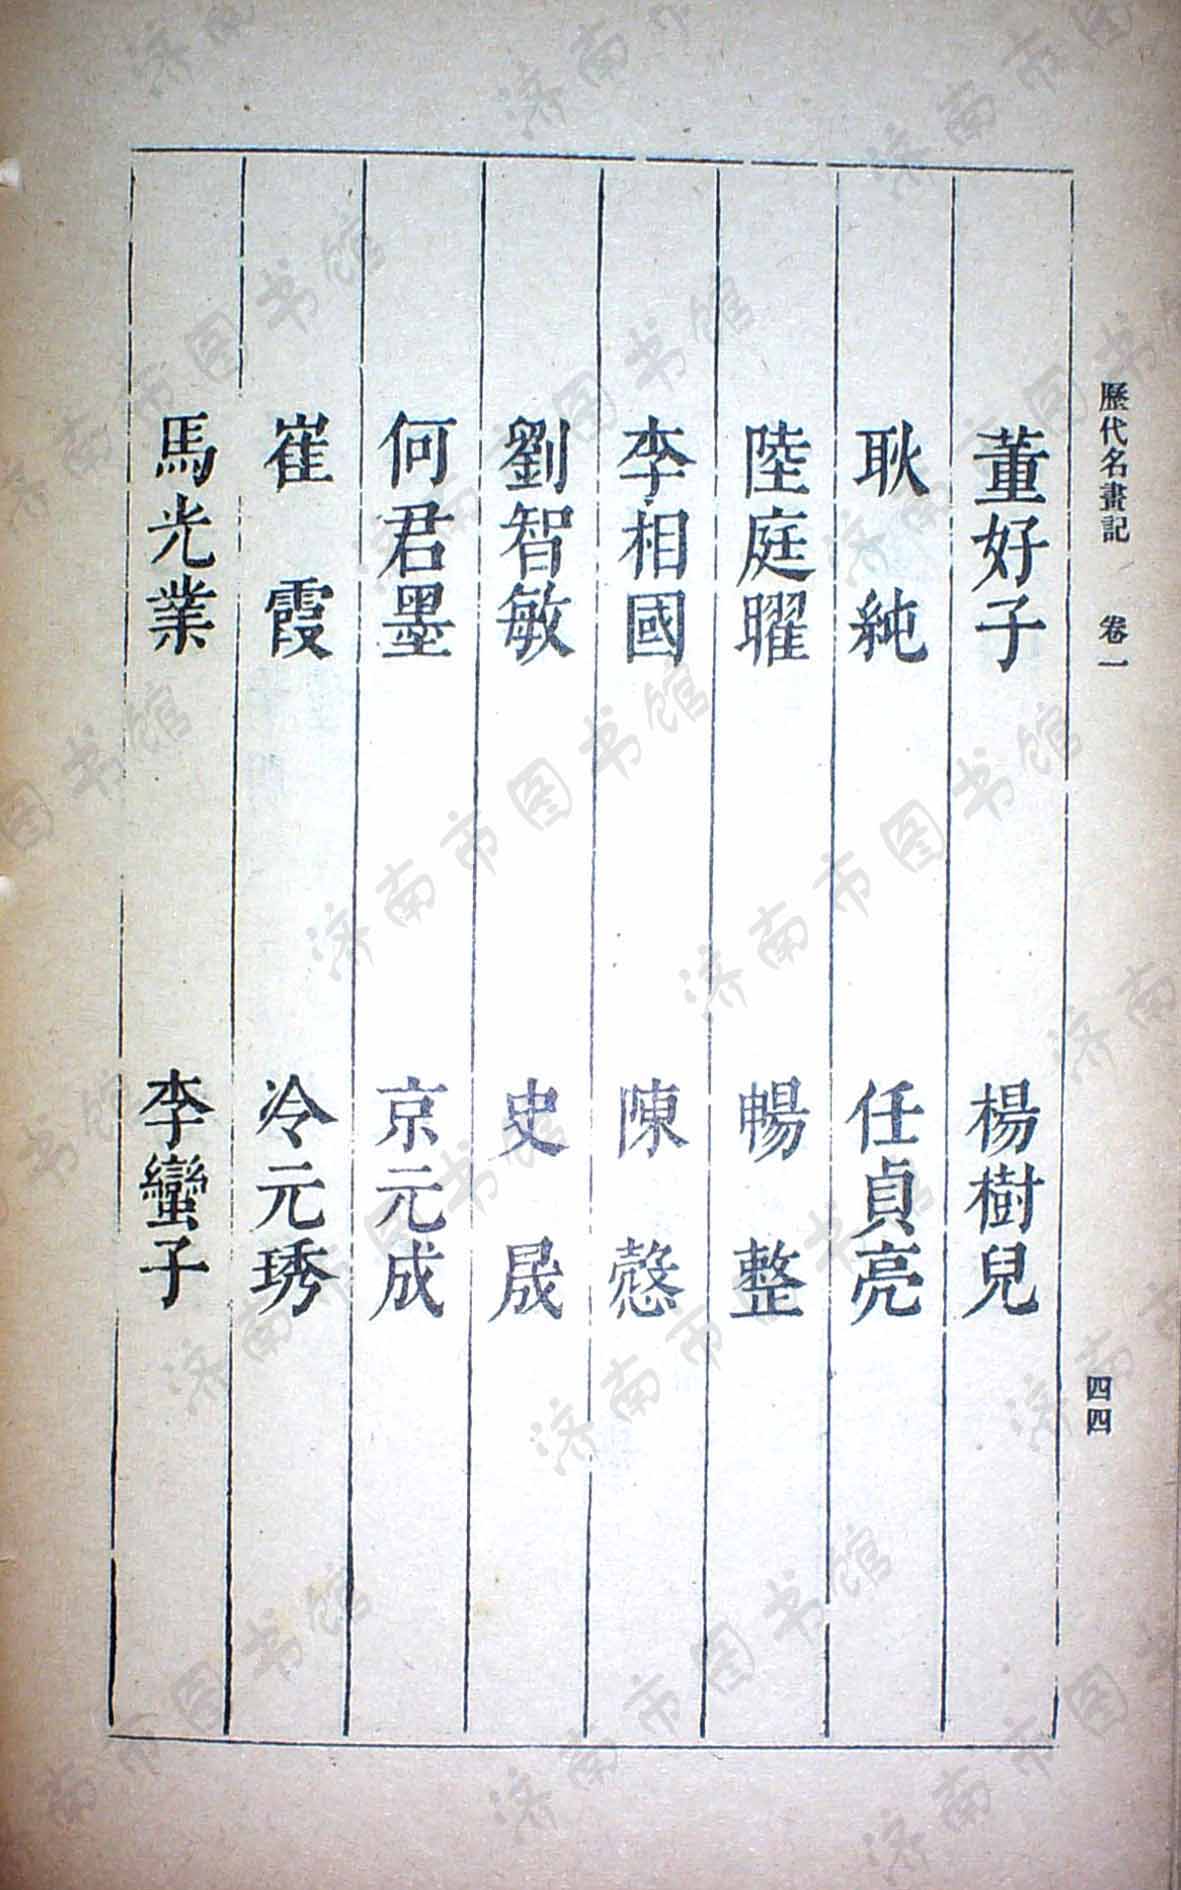 歷代名畫記 卷一 四四
董好子 楊樹兒
耿純 任貞亮
陸庭曜 暢整
李相國 陳慤
劉智敏 史晟
何君墨 京元成
崔霞 冷元琇
馬光業 李蠻子
济南市图书馆